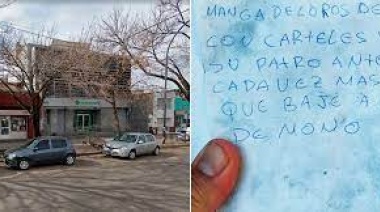 MANGA DE LOROS DE
CON CARTELES
SU PATRO ANTO
CADA VEZ MAS
QUE BAJE A
DE NONO